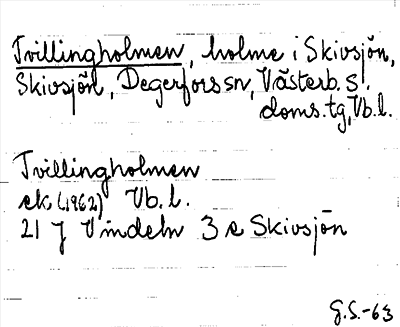 Tvillingholmen, holme i Skivsjön,
Skivsjön, Degerfors sn, Västerb. s.
doms. tg, Vb. l.
Tvillingholmen
ek. (1962) Vb. l.
21 J Vindeln 3 e Skivsjön
G.S.-63